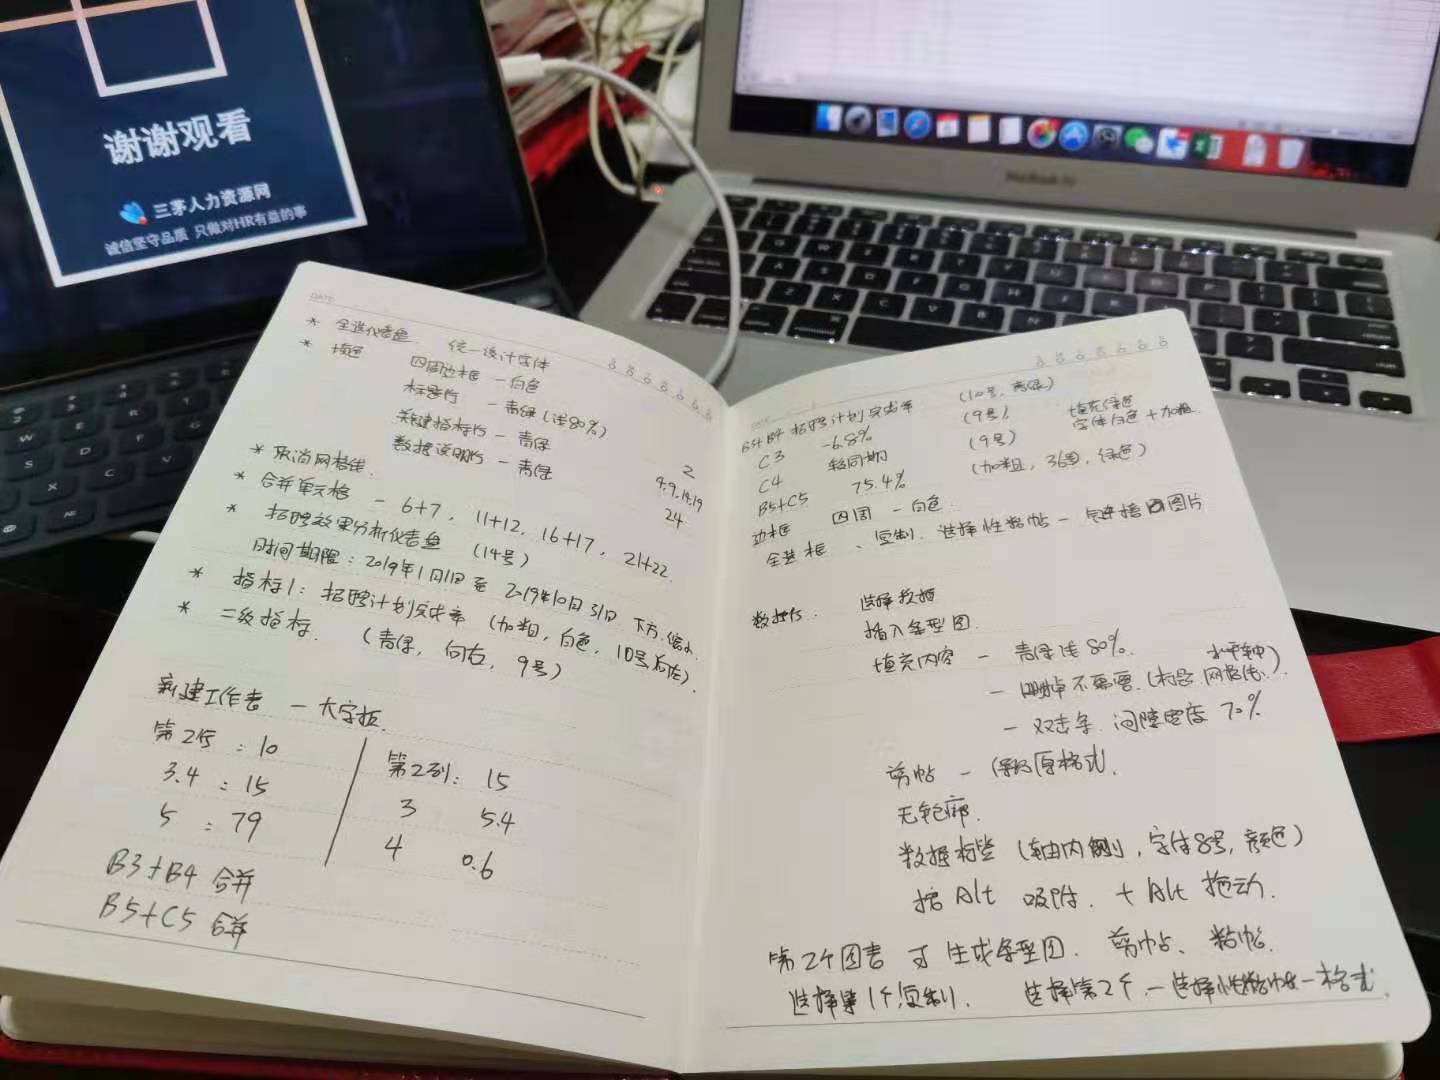 谢谢观看
三茅人力资源网
诚信坚守品质 只做对HR有益的事
MacBook Air
DATE
* 全选仪表盘 统一设计字体
* 填色 四周边框 - 白色
标题行 - 青绿(浅80%)
关键指标行 - 青绿
数据说明行 - 青绿
* 取消网格线
2
* 合并单元格 - 6+7, 11+12, 16+17, 21+22
4.9.14.19
24
* 招聘效果分析仪表盘 (14号)
时间期限:2019年1月1日至2019年10月31日 下方,缩小
* 指标1:招聘计划完成率 (加粗,白色,10号,左)
* 二级指标 (青绿,向右,9号)
新建工作表 - 大字报
第2行:10
3.4:15
5:79
第2列:15
3 5.4
4 0.6
B3+B4 合并
B5+C5 合并
B3+B4 招聘计划完成率 (10号,青绿)
C3 -6.8% (9号) 填充绿色 字体白色+加粗
C4 较同期 (9号)
B5+C5 75.4% (加粗,36号,绿色)
边框 四周 - 白色
全选框、复制、选择性粘帖 - 链接的图片
数据行: 选择数据
插入条型图
填充内容 - 青绿浅80%
- 删掉不需要(标题 网格线) 水平轴
- 双击条 间隙宽度 70%
剪帖 - 保留原格式
无轮廓
数据标签(轴内侧,字体8号,颜色)
按Alt 吸附 + Alt 拖动
第2个图表 可生成条型图 剪帖、粘帖
选择第1个复制 选择第2个 - 选择性粘帖 - 格式